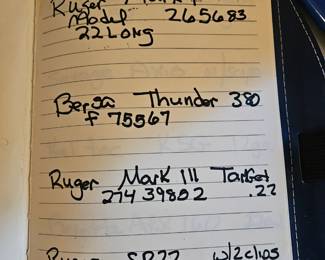 Ruger
Model 265683
22 Long
Bersa Thunder 380
F 75567
Ruger Mark III Target
274 39802 .22
Ruger SR22 w/2clips